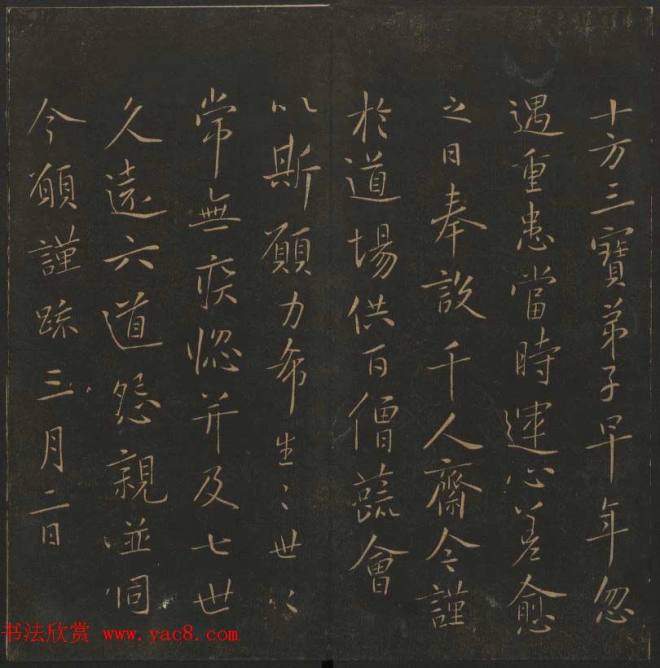 十方三寶弟子早年忽
遇重患當時運心差愈
之日奉設千人齋今謹
於道場供百僧蔬會
以斯願力希生〻世〻
常無疾惱并及七世
久遠六道怨親並同
今願謹疏三月二日
书法欣赏 www.yac8.com